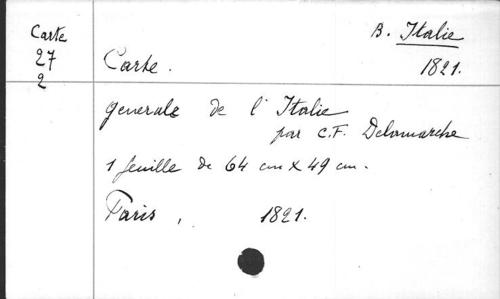 Carte
27
2
B. Italie
1821.
Carte.
generale de l'Italie
par C.F. Delamarche
1 feuille de 64 cm x 49 cm.
Paris, 1821.